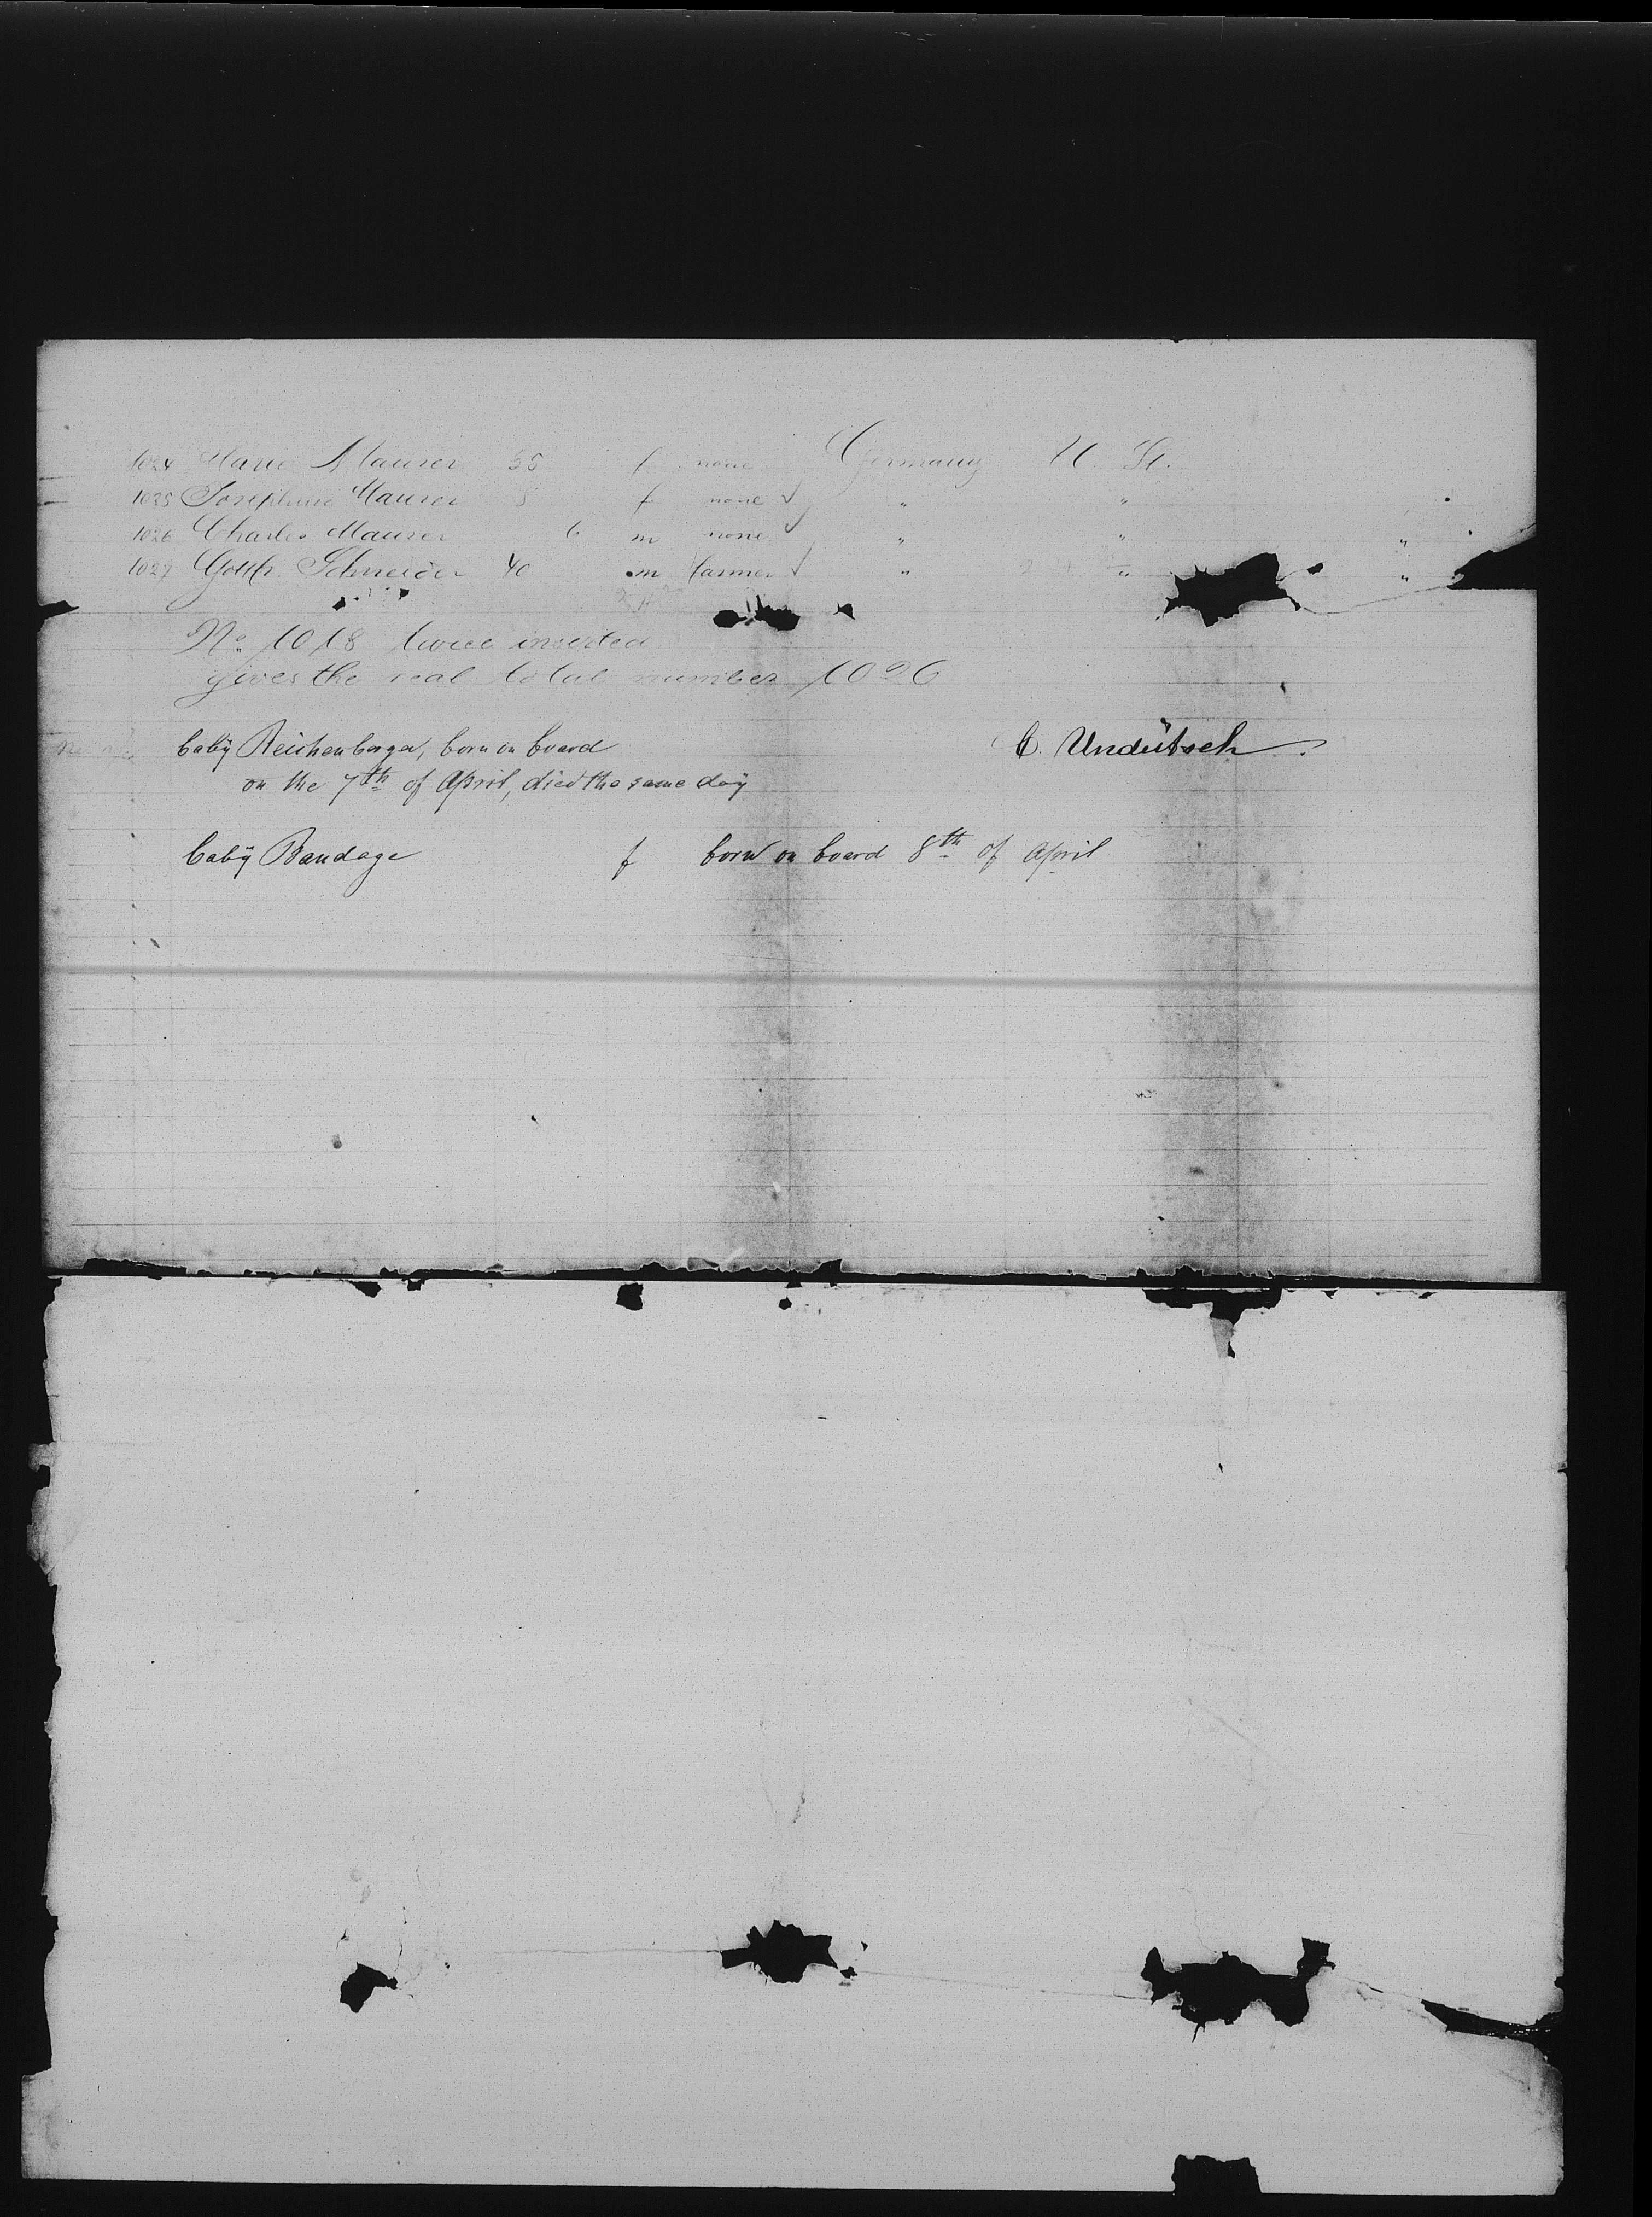 1024 Marie Maurer 35 f none Germany U. St.
1025 Josephine Maurer 8 f none " "
1026 Charles Maurer 6 m none " " "
1027 Gottfr. Schneider 40 m farmer " " "
No. 1018 twice inserted
gives the real total number 1026
baby Reichenberger, born on board C. Undeütsch.
on the 7th of April, died the same day
baby Bandage f born on board 8th of April